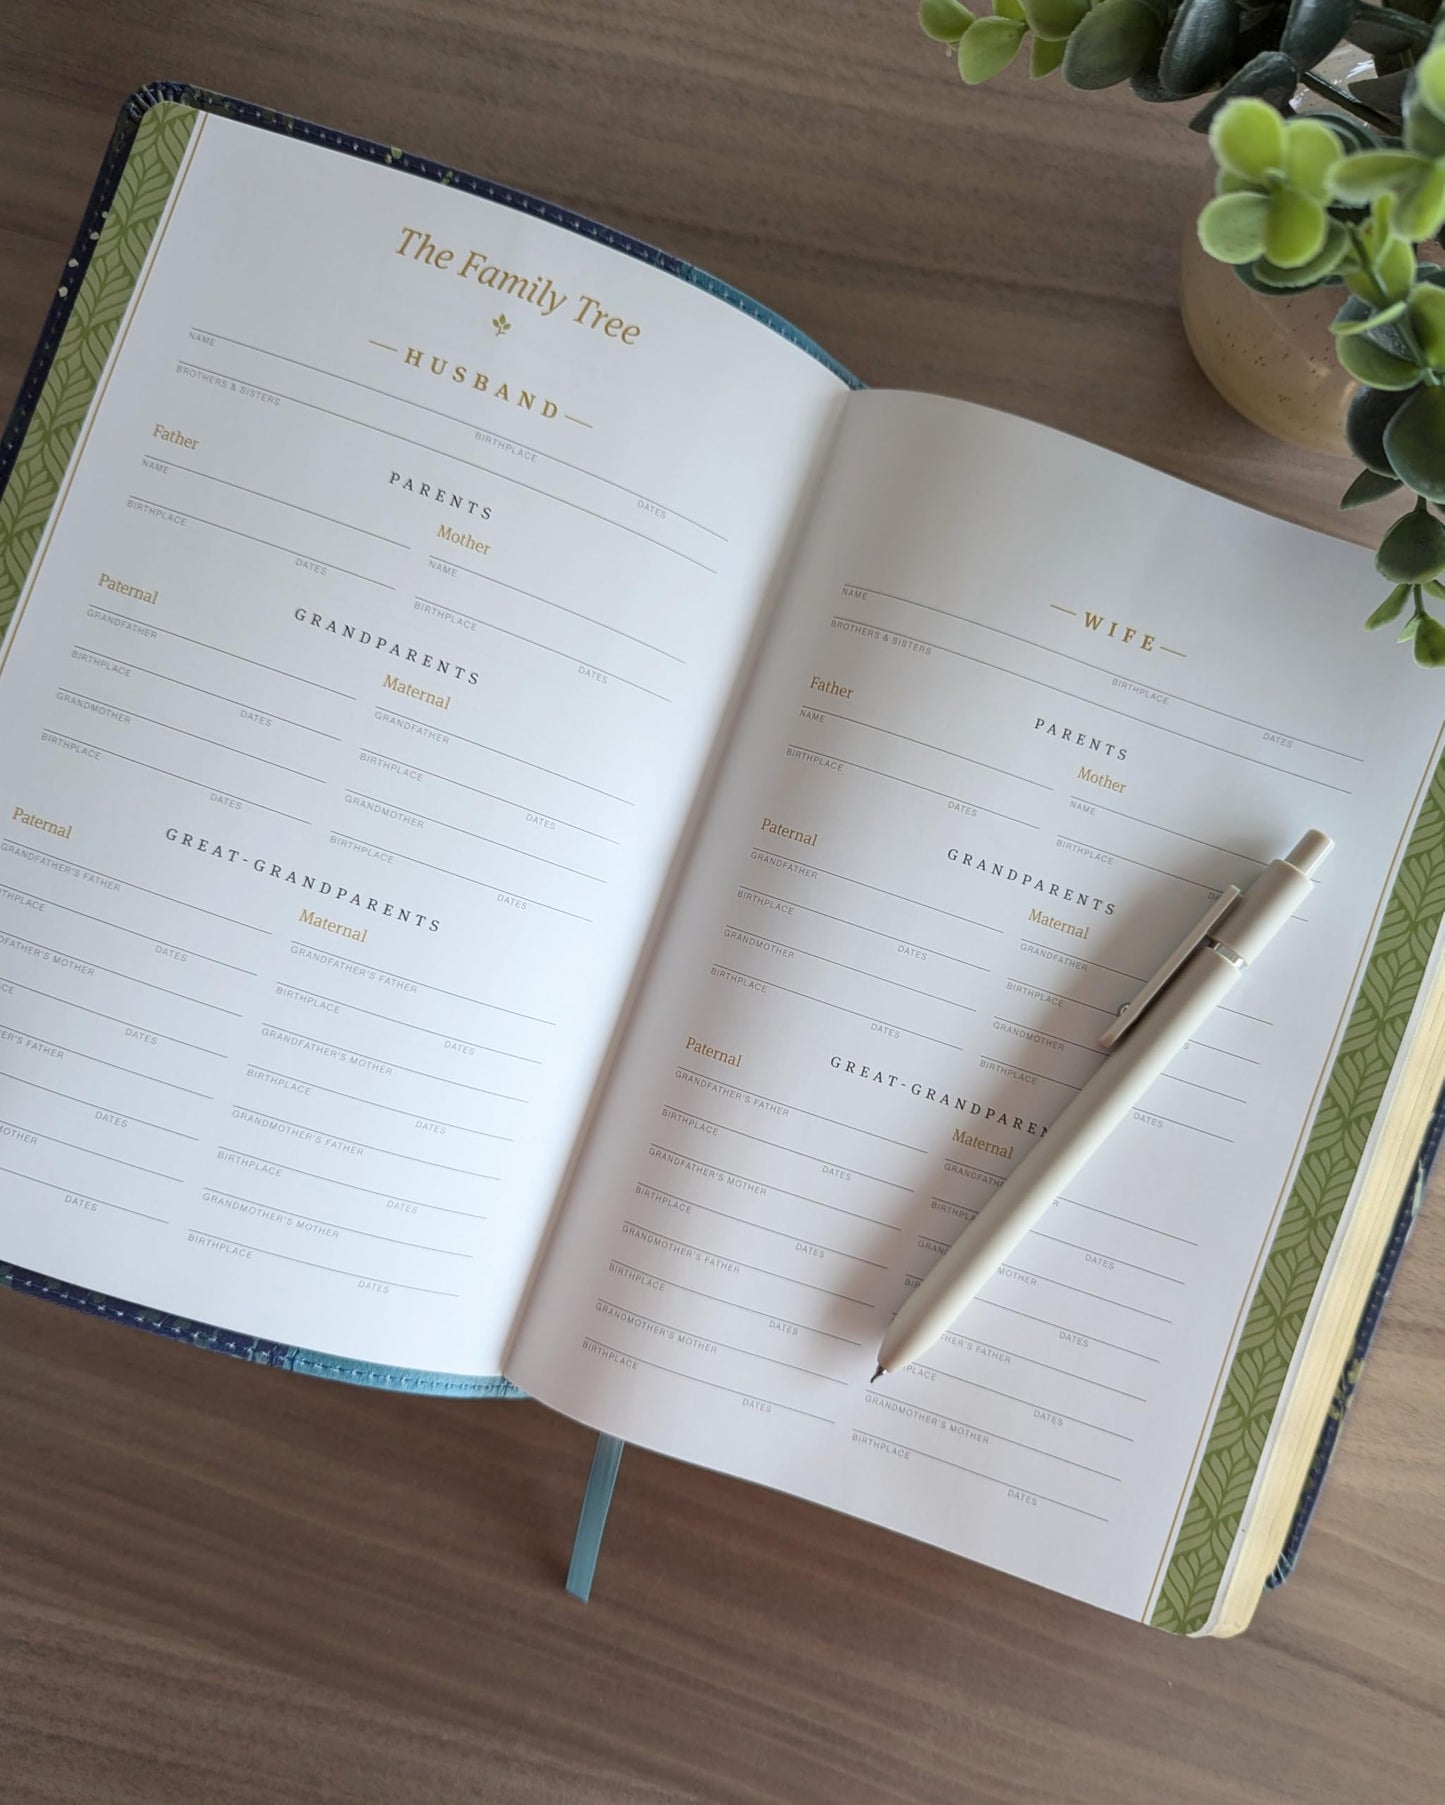 The Family Tree
HUSBAND
NAME
BIRTHPLACE
DATES
BROTHERS & SISTERS
PARENTS
Father
NAME
BIRTHPLACE
DATES
Mother
NAME
BIRTHPLACE
DATES
GRANDPARENTS
Paternal
GRANDFATHER
BIRTHPLACE
DATES
GRANDMOTHER
BIRTHPLACE
DATES
Maternal
GRANDFATHER
BIRTHPLACE
DATES
GRANDMOTHER
BIRTHPLACE
DATES
GREAT-GRANDPARENTS
Paternal
GRANDFATHER'S FATHER
BIRTHPLACE
DATES
MOTHER
DATES
FATHER
DATES
MOTHER
DATES
Maternal
GRANDFATHER'S FATHER
BIRTHPLACE
DATES
GRANDFATHER'S MOTHER
BIRTHPLACE
DATES
GRANDMOTHER'S FATHER
BIRTHPLACE
DATES
GRANDMOTHER'S MOTHER
BIRTHPLACE
DATES
WIFE
NAME
BIRTHPLACE
DATES
BROTHERS & SISTERS
PARENTS
Father
NAME
BIRTHPLACE
DATES
Mother
NAME
BIRTHPLACE
GRANDPARENTS
Paternal
GRANDFATHER
BIRTHPLACE
DATES
GRANDMOTHER
BIRTHPLACE
DATES
Maternal
GRANDFATHER
BIRTHPLACE
GRANDMOTHER
BIRTHPLACE
DATES
GREAT-GRANDPAREN
Paternal
GRANDFATHER'S FATHER
BIRTHPLACE
DATES
GRANDFATHER'S MOTHER
BIRTHPLACE
DATES
GRANDMOTHER'S FATHER
BIRTHPLACE
DATES
GRANDMOTHER'S MOTHER
BIRTHPLACE
DATES
Maternal
DATES
MOTHER
DATES
FATHER
DATES
GRANDMOTHER'S MOTHER
BIRTHPLACE
DATES